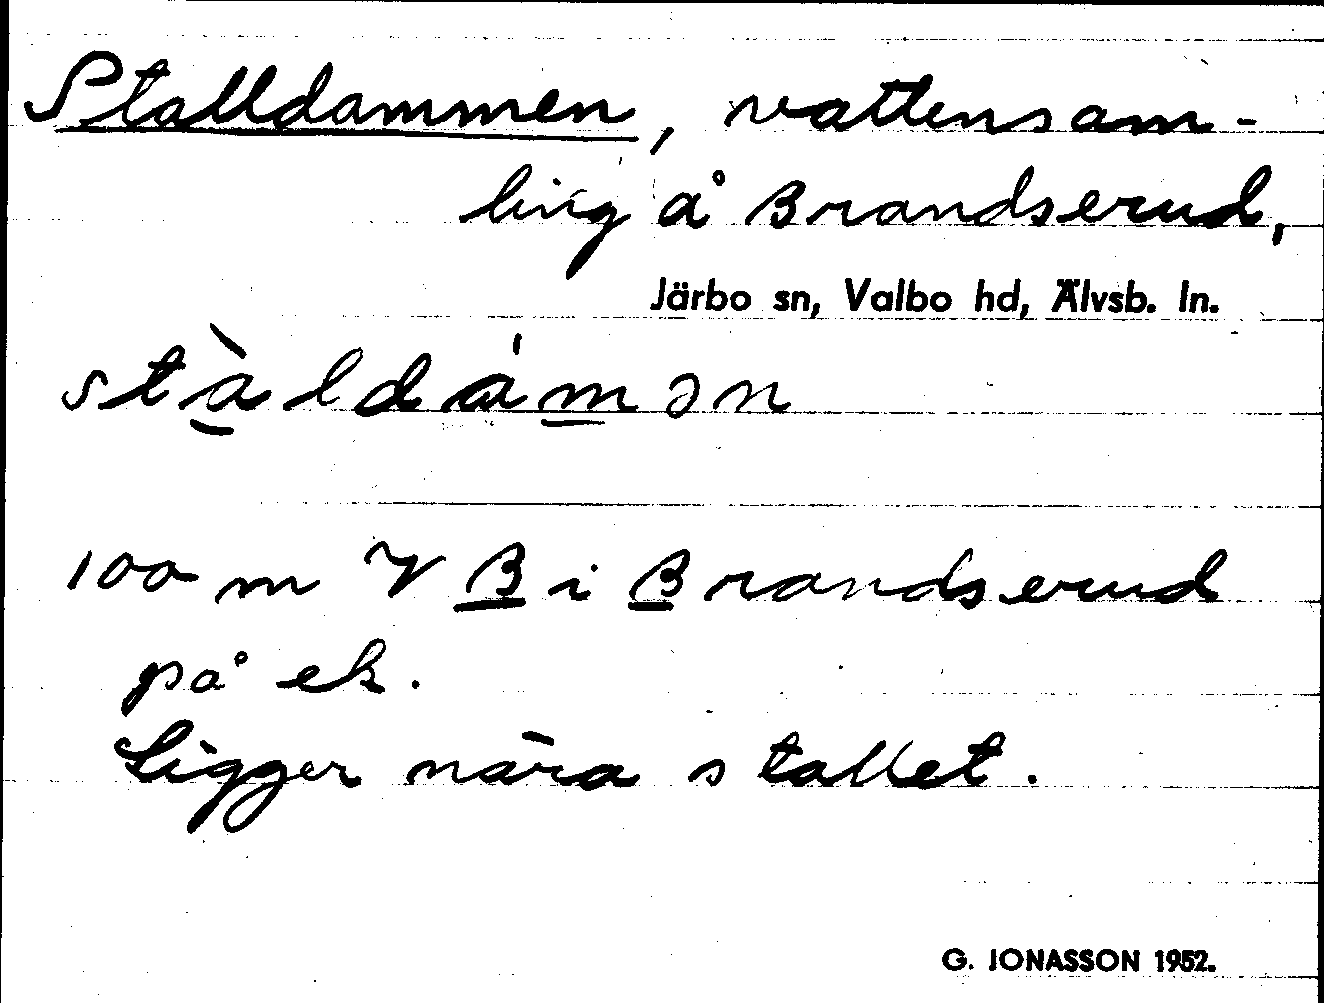 Stalldammen, vattensam-
ling å Brandserud,
Järbo sn, Valbo hd, Älvsb. ln.
stà̱ldám̱ən
100 m V B i Brandserud
på ek.
Ligger nära stallet.
G. JONASSON 1952.